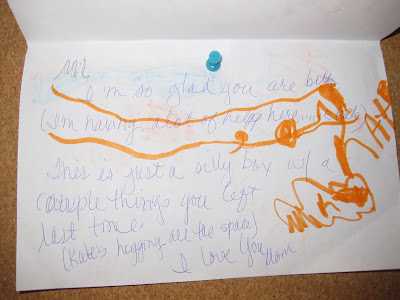 I'm so glad you are
(I'm having a bit of help here
This is just a silly box w/ a
couple things you left
last time.
(Kate's hogging all the space)
I Love You